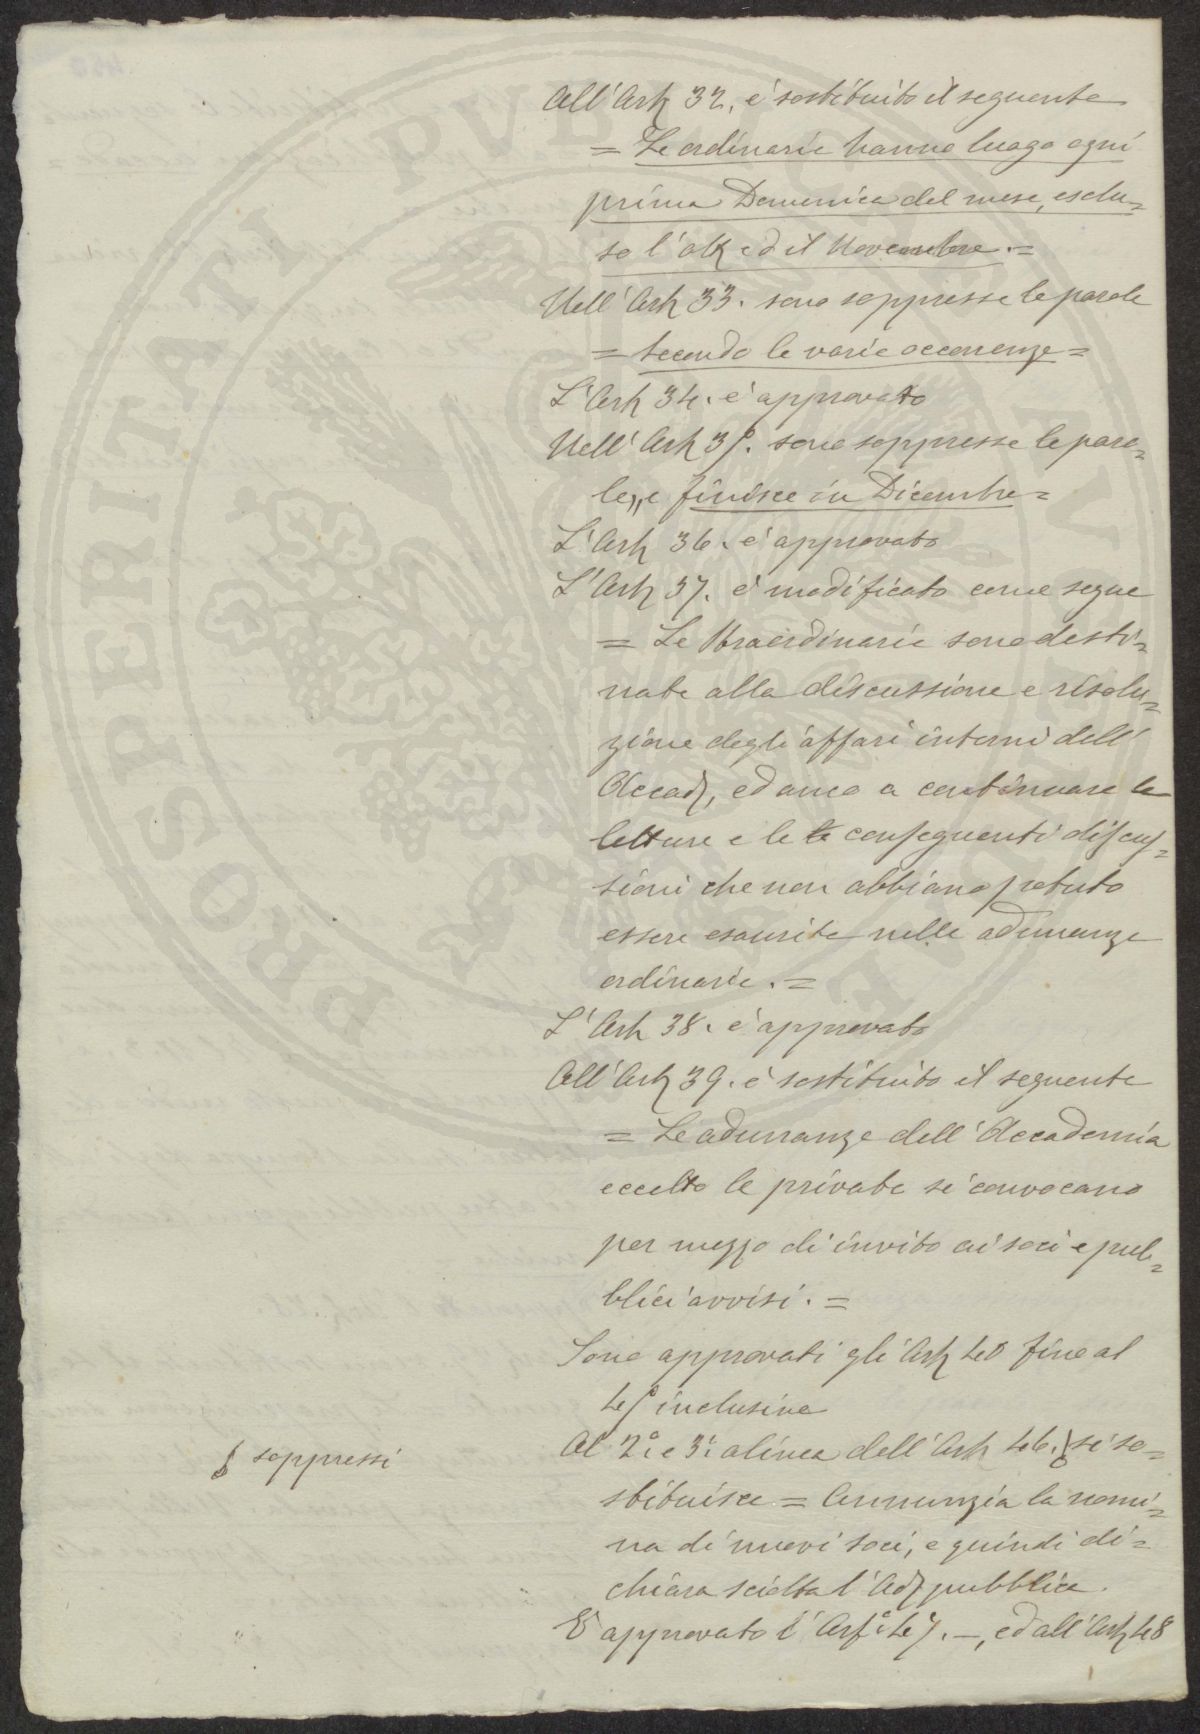 All'Art. 32. è sostituito il seguente
= Le ordinarie hanno luogo ogni
prima Domenica del mese, esclu=
so l'ott. ed il Novembre. =
Nell'Art. 33. sono soppresse le parole
= secondo le varie occorrenze =
L'Art. 34. è approvato
Nell'Art. 35. sono soppresse le paro=
le,, e finisce in Dicembre =
L'Art. 36. è approvato
L'Art. 37. è modificato come segue
= Le straordinarie sono desti=
nate alla discussione e risolu=
zione degli affari interni dell'
Accad., ed anco a continuare le
letture e le le conseguenti discus=
sioni che non abbiano potuto
essere esaurite nelle adunanze
ordinarie. =
L'Art. 38. è approvato
All'Art. 39. è sostituito il seguente
= Le adunanze dell'Accademia
eccetto le private si convocano
per mezzo di invito ai soci e pub=
blici avvisi. =
Sono approvati gli Art. 40 fino al
45 inclusive
Al 2°. e 3°. alinea dell'Art. 46. si so=
soppressi
stituisce = Annunzia la nomi=
na di nuovi soci, e quindi di=
chiara sciolta l'Ad. pubblica.
È approvato l'Art. 47. —, ed all'Art. 48
PROSPERITATI PVBLICAE